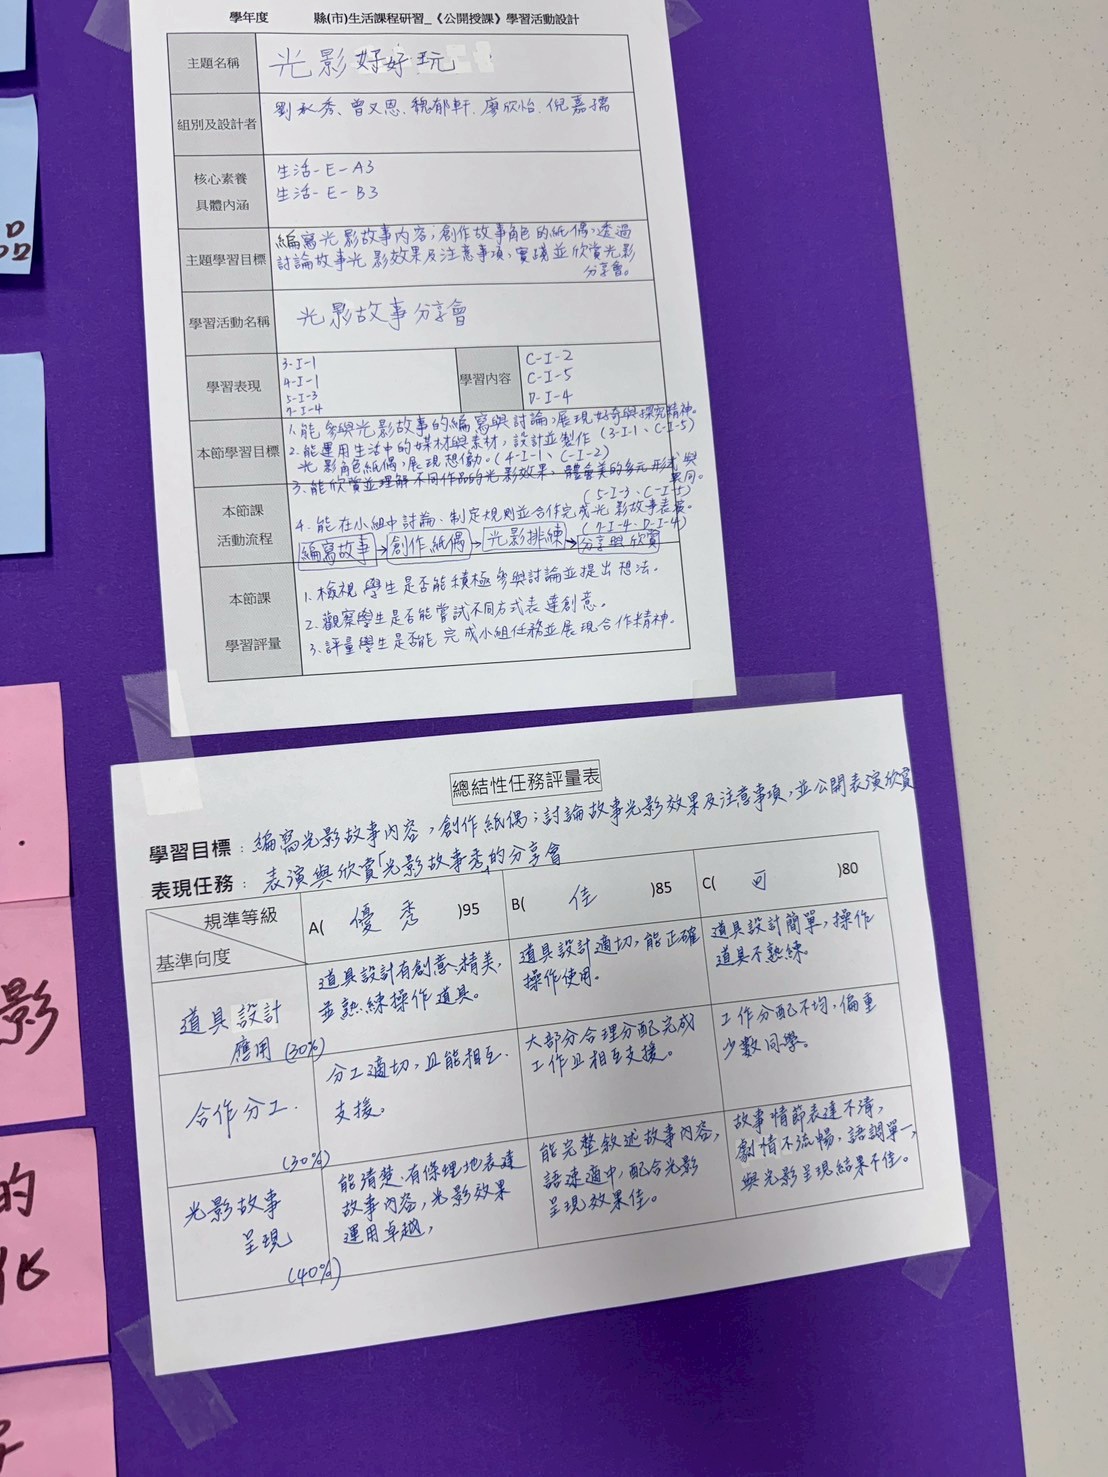 學年度 縣(市)生活課程研習_《公開授課》學習活動設計
主題名稱 光影好好玩
組別及設計者 劉永秀、曾又恩、魏郁軒、廖欣怡、倪嘉孺
核心素養
具體內涵
生活-E-A3
生活-E-B3
主題學習目標
編寫光影故事內容,創作故事角色的紙偶,透過
討論故事光影效果及注意事項,實踐並欣賞光影
分享會。
學習活動名稱 光影故事分享會
學習表現
3-I-1
4-I-1
5-I-3
7-I-4
學習內容
C-I-2
C-I-5
D-I-4
本節學習目標
1.能參與光影故事的編寫與討論,展現好奇與探究精神。
(3-I-1、C-I-5)
2.能運用生活中的媒材與素材,設計並製作
光影角色紙偶,展現想像力。(4-I-1、C-I-2)
3.能欣賞並理解不同作品的光影效果,體會美的多元形式與
異同。
(5-I-3、C-I-5)
4.能在小組中討論、制定規則並合作完成光影故事表演。
(7-I-4、D-I-4)
本節課
活動流程
編寫故事→創作紙偶→光影排練→分享與欣賞
本節課
學習評量
1.檢視學生是否能積極參與討論並提出想法。
2.觀察學生是否能嘗試不同方式表達創意。
3.評量學生是否能完成小組任務並展現合作精神。
總結性任務評量表
學習目標:編寫光影故事內容,創作紙偶;討論故事光影效果及注意事項,並公開表演欣賞
表現任務:表演與欣賞「光影故事秀」的分享會
規準等級
基準向度
A( 優秀 )95
B( 佳 )85
C( 可 )80
道具設計
應用(30%)
道具設計有創意、精美,
並熟練操作道具。
道具設計適切,能正確
操作使用。
道具設計簡單,操作
道具不熟練。
合作分工.
(30%)
分工適切,且能相互.
支援。
大部分合理分配完成
工作且相互支援。
工作分配不均,偏重
少數同學。
光影故事
呈現
(40%)
能清楚、有條理地表達
故事內容,光影效果
運用卓越,
能完整敘述故事內容,
語速適中,配合光影
呈現效果佳。
故事情節表達不清,
劇情不流暢,語調單一,
與光影呈現結果不佳。
影
的
化